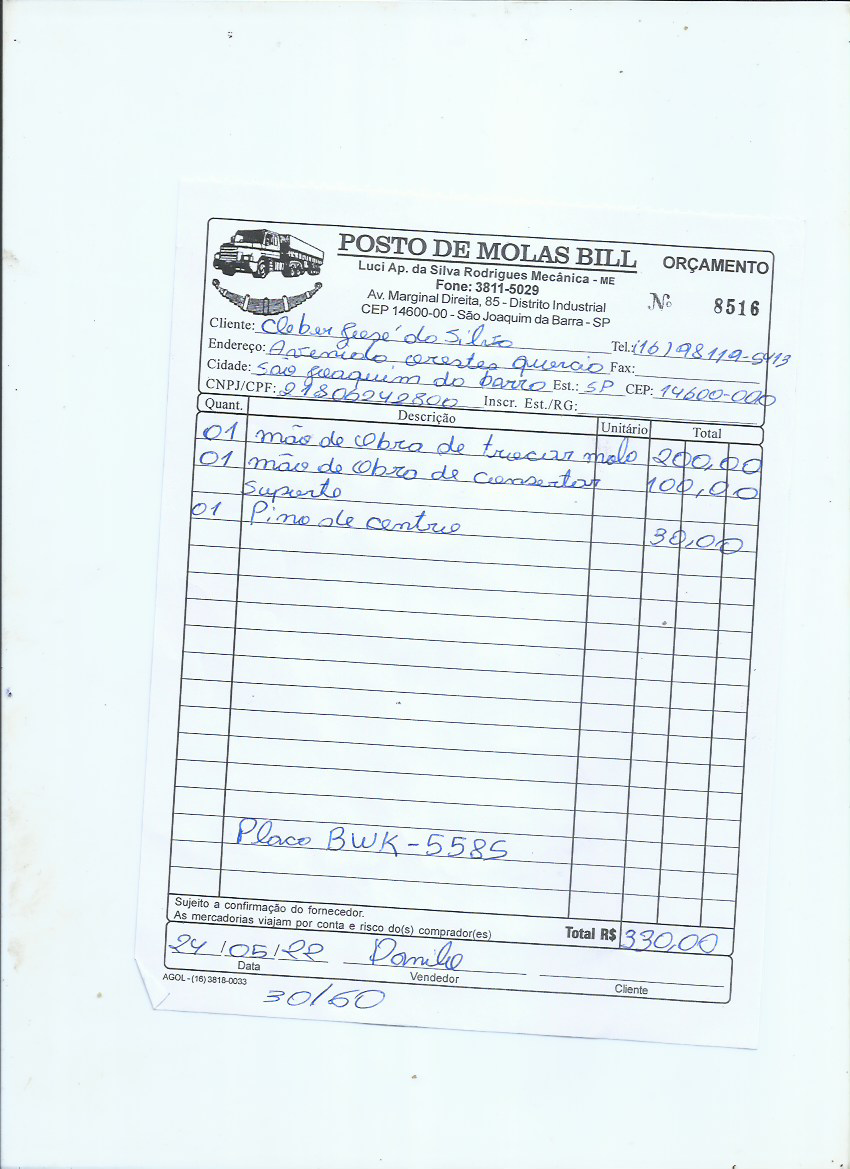 POSTO DE MOLAS BILL
ORÇAMENTO
Luci Ap. da Silva Rodrigues Mecânica - ME
Fone: 3811-5029
Av. Marginal Direita, 85 - Distrito Industrial
CEP 14600-00 - São Joaquim da Barra - SP
Nº 8516
Cliente: Cleber José do Silva Tel.: (16) 98119-5413
Endereço: Avenida orestes quercio Fax:
Cidade: São Joaquim da barra Est.: SP CEP: 14600-000
CNPJ/CPF: 21806242800 Inscr. Est./RG:
Quant. Descrição Unitário Total
01 mão de Obra de trocar mola 200,00
01 mão de Obra de consertar 100,00
suporte
01 Pino de centro 30,00
Placa BWK-5585
Sujeito a confirmação do fornecedor.
As mercadorias viajam por conta e risco do(s) comprador(es)
Total R$ 330,00
24/05/22 Danilo
Data Vendedor Cliente
AGOL - (16) 3818-0033
30/60